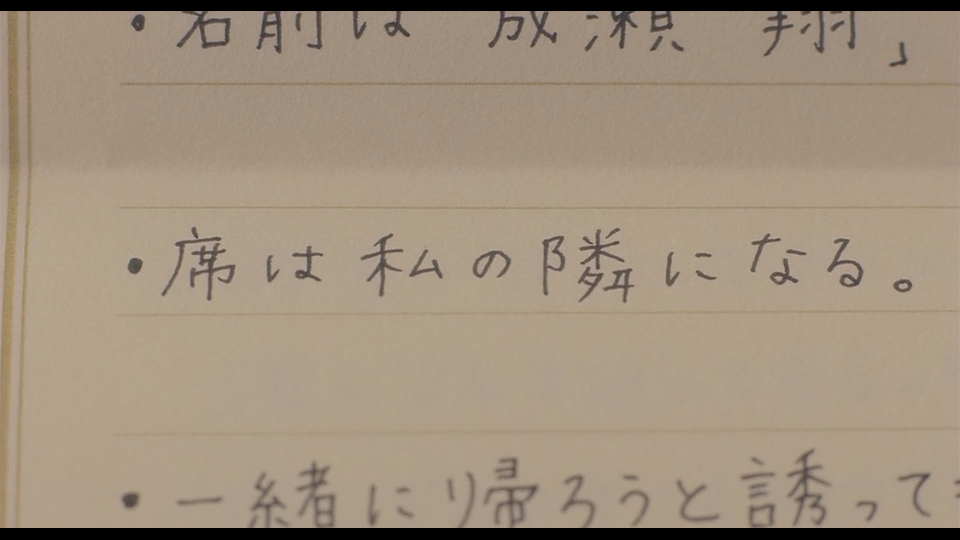 ・名前は 成瀬 翔」
・席は私の隣になる。
・一緒に帰ろうと誘って